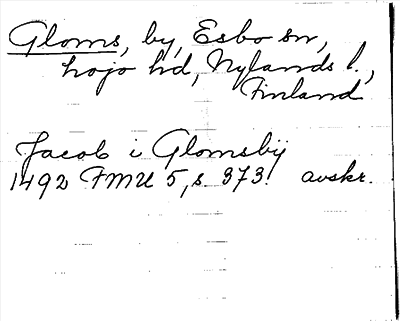 Gloms, by, Esbo sn,
Lojo hd, Nylands l.,
Finland
Jacob i Glomsbÿ
1492 FMU 5, s. 373. avskr.